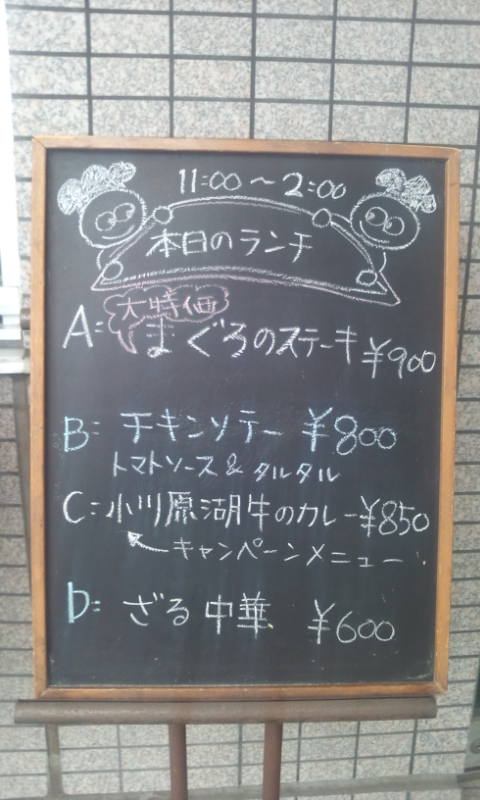 11:00～2:00
本日のランチ
大特価
A: まぐろのステーキ ¥900
B: チキンソテー ¥800
トマトソース & タルタル
C: 小川原湖牛のカレー ¥850
キャンペーンメニュー
D: ざる中華 ¥600